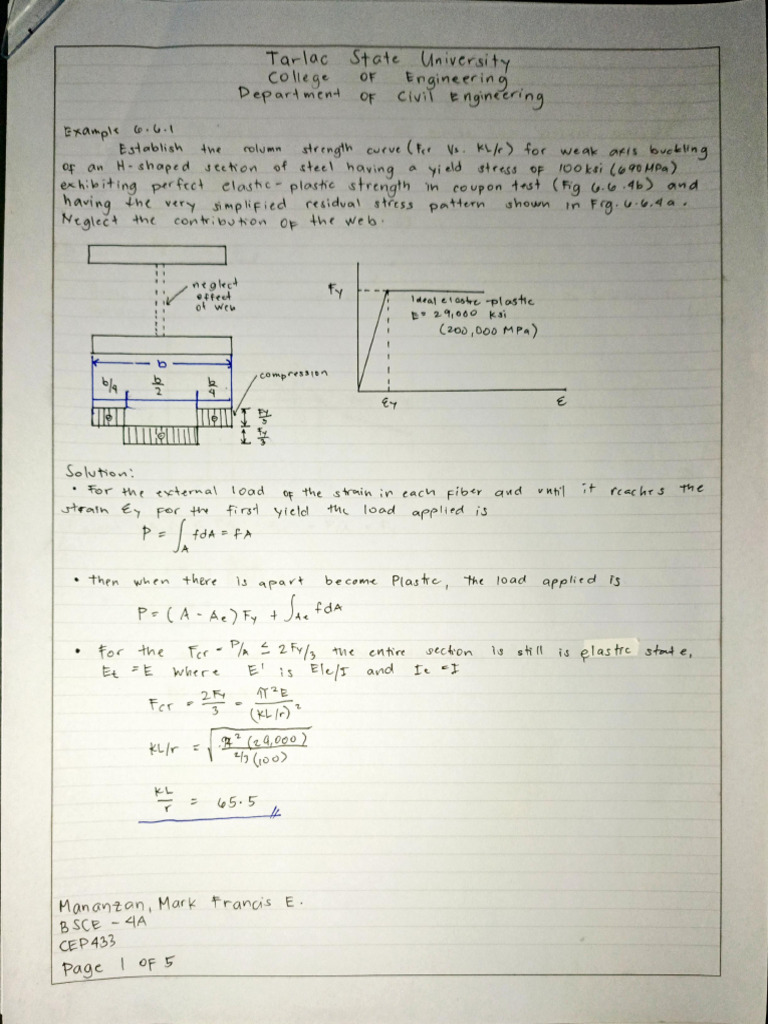 Tarlac State University
College OF Engineering
Department OF Civil Engineering
Example 6.6.1
Establish the column strength curve (Fcr Vs. KL/r) for weak axis buckling
of an H-shaped section of steel having a yield stress of 100 ksi (690 MPa)
exhibiting perfect elastic-plastic strength in coupon test (Fig 6.6.4b) and
having the very simplified residual stress pattern shown in Fig. 6.6.4a.
Neglect the contribution of the web.
neglect
effect
of web
b
b/4
b/2
b/4
compression
Fy/3
Fy/3
Fy
Ideal elastic-plastic
E = 29,000 ksi
(200,000 MPa)
εy
ε
Solution:
• For the external load of the strain in each fiber and until it reaches the
strain εy for the first yield the load applied is
P = ∫A fdA = fA
• then when there is apart become Plastic, the load applied is
P = (A - Ae) Fy + ∫Ae fdA
• For the Fcr = P/A ≤ 2Fy/3 the entire section is still is elastic state,
Et = E where E' is EIe/I and Ie = I
Fcr = 2Fy/3 = π²E/(KL/r)²
KL/r = √(π²(29,000)/2/3(100))
KL/r = 65.5
Mananzan, Mark Francis E.
BSCE - 4A
CEP433
Page 1 OF 5